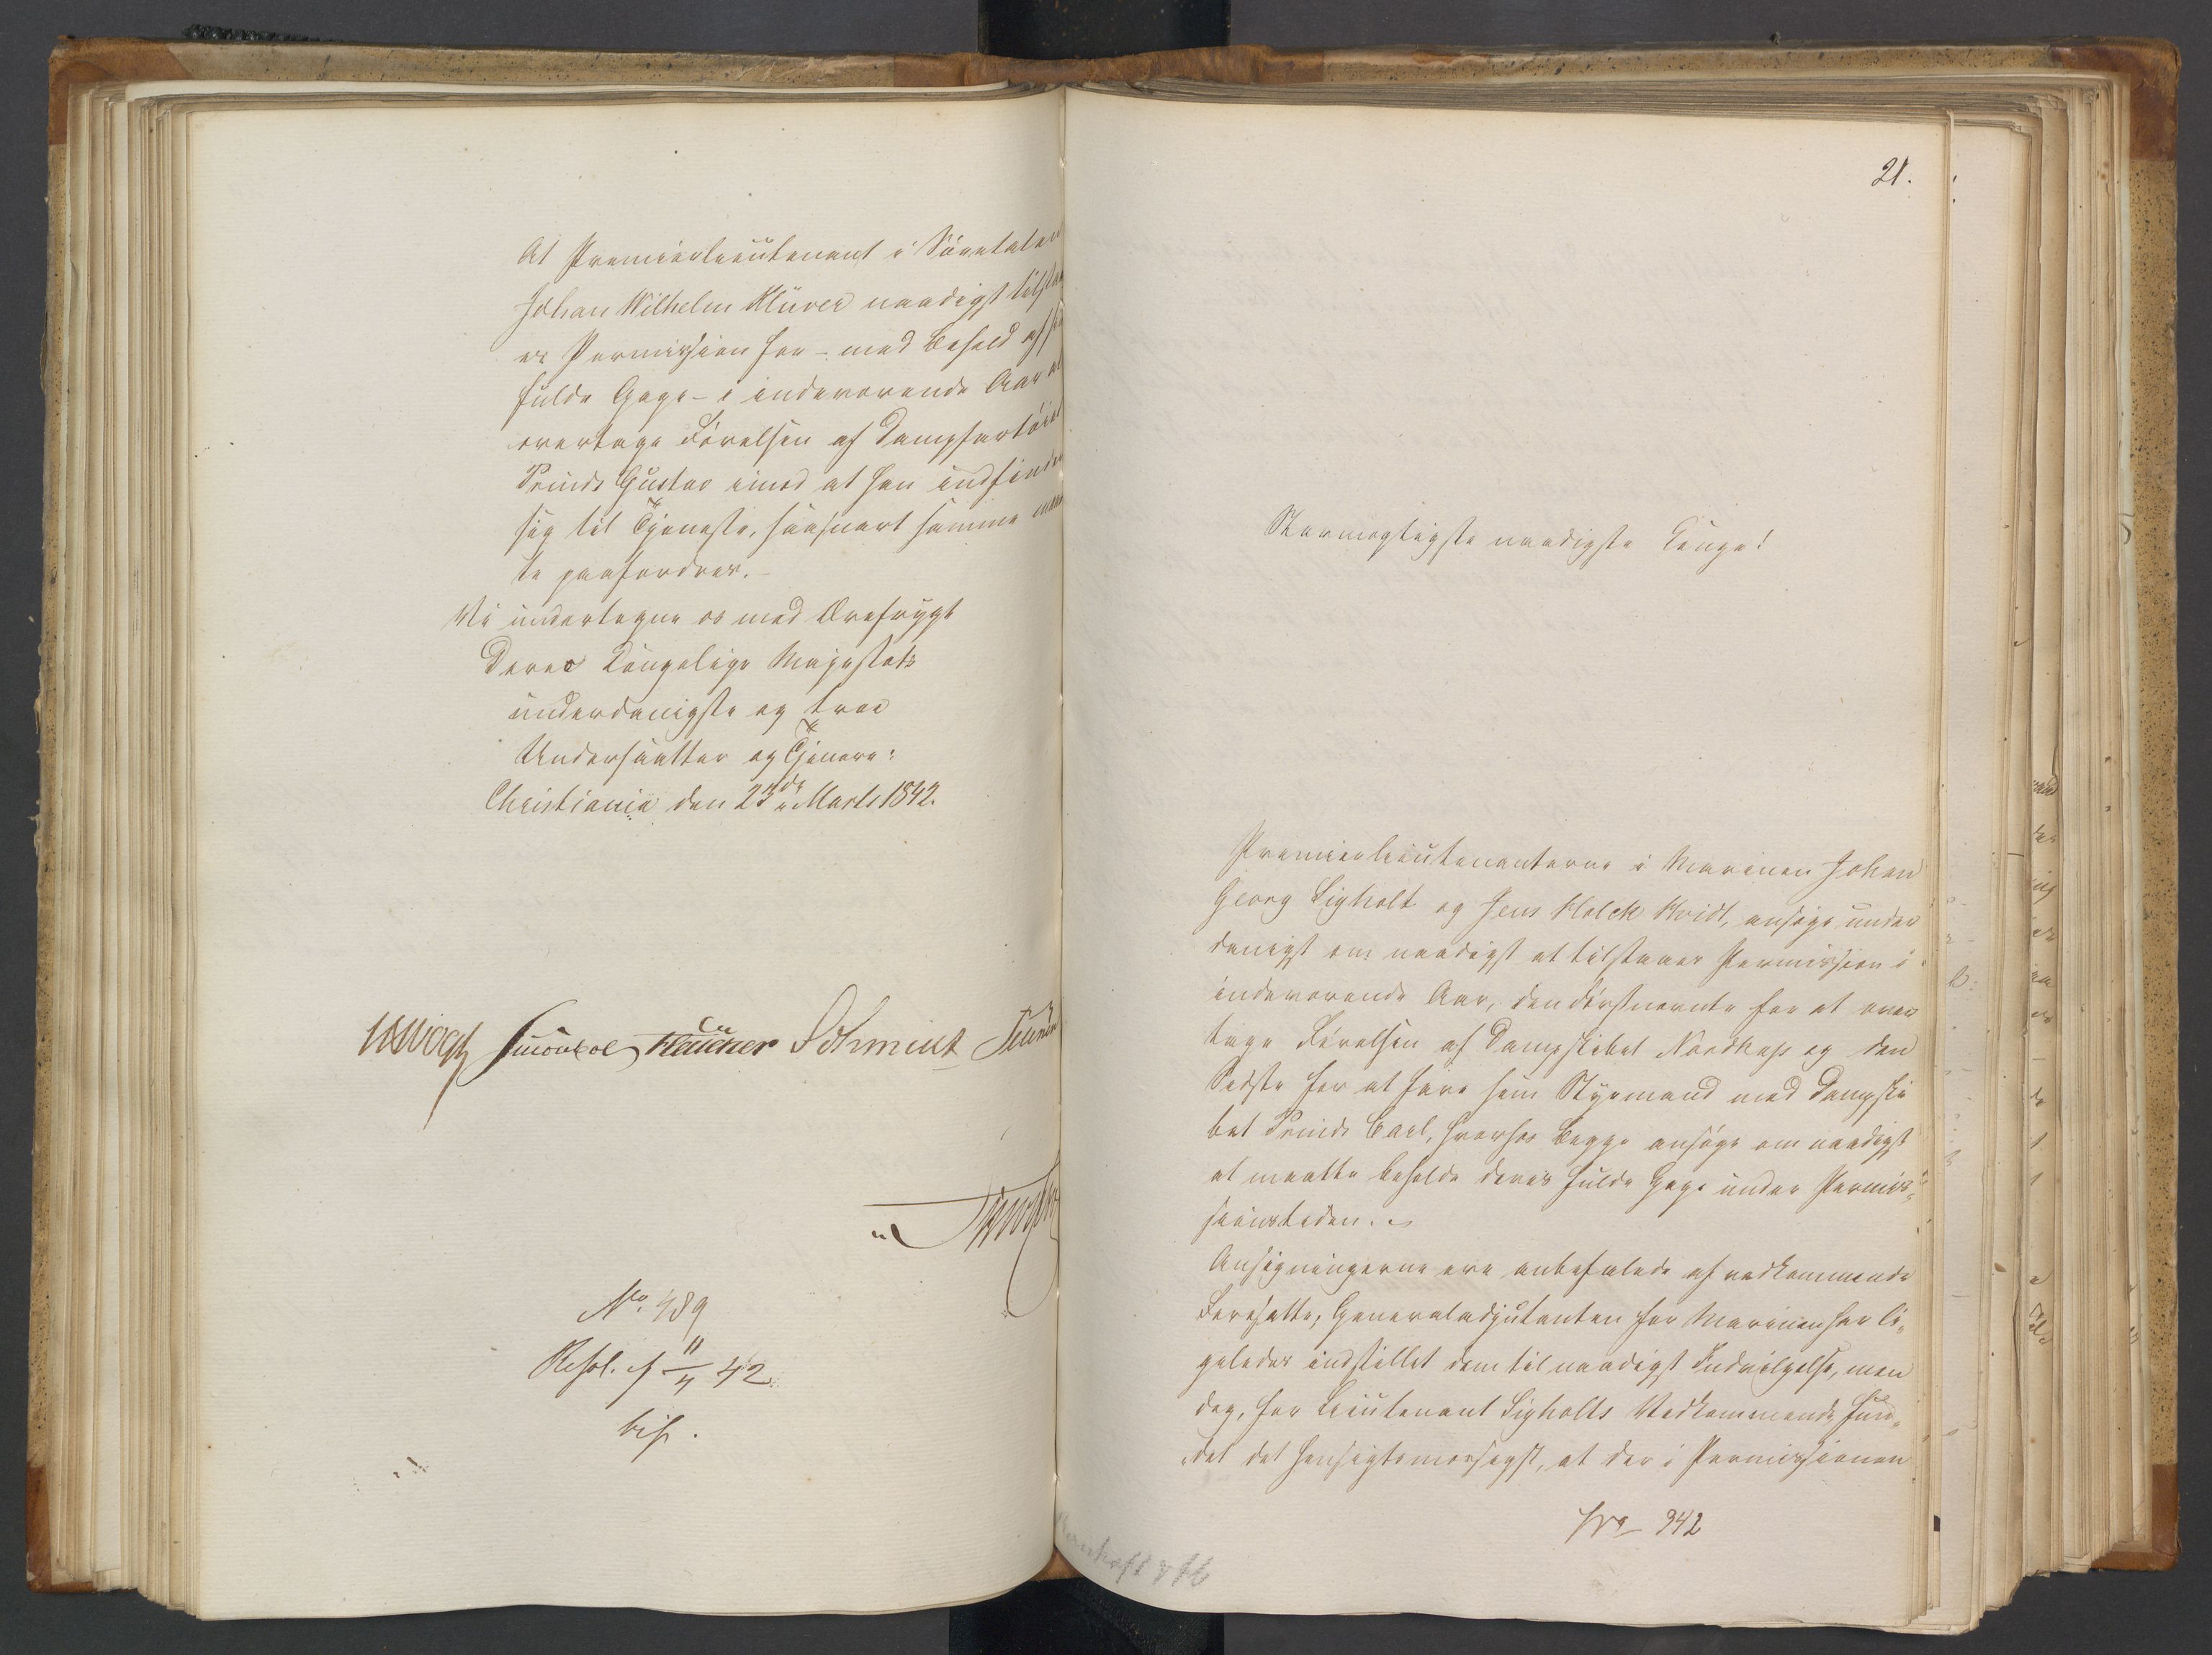 At Premierlieutenant i Søeetaten
Johan Wilhelm Klüver naadigst tilstaa
es Permission for – med Behold af sin
fulde Gage – i indeværende Aar at
overtage Førelsen af Dampfartøiet
Prinds Gustav imod at han indfinder
sig til Tjeneste, saasnart samme maat
te paafordres. –
Vi undertegne os med Ærefrygt
Deres Kongelige Majestæts
underdanigste og troe
Undersaatter og Tjenere:
Christiania den 23de Marts 1842.
Vogt Krieger Schmidt
No. 489
Resol. af 11/4 42
bif.
21.
Stormægtigste naadigste Konge!
Premierlieutenanterne i Marinen Johan
Georg Ligholt og Jens Holck Hvidt, ansøge under
danigst om naadigst at tilstaaes Permission i
indeværende Aar, den Førstnævnte for at over
tage Førelsen af Dampskibet Nordkap og den
Sidste for at fare som Styrmand med Dampski
bet Prinds Carl, hvorhos Begge ansøge om naadigst
at maatte beholde deres fulde Gage under Permis-
sionstiden.
Ansøgningerne ere anbefalede af vedkommende
Foresatte, Generaladjutanten for Marinen har li-
geledes indstillet dem til naadigst Indvilgelse, men
dog, for Lieutenant Ligholts Vedkommende fun-
det det hensigtsmæssigst, at der i Permissionen
No 342